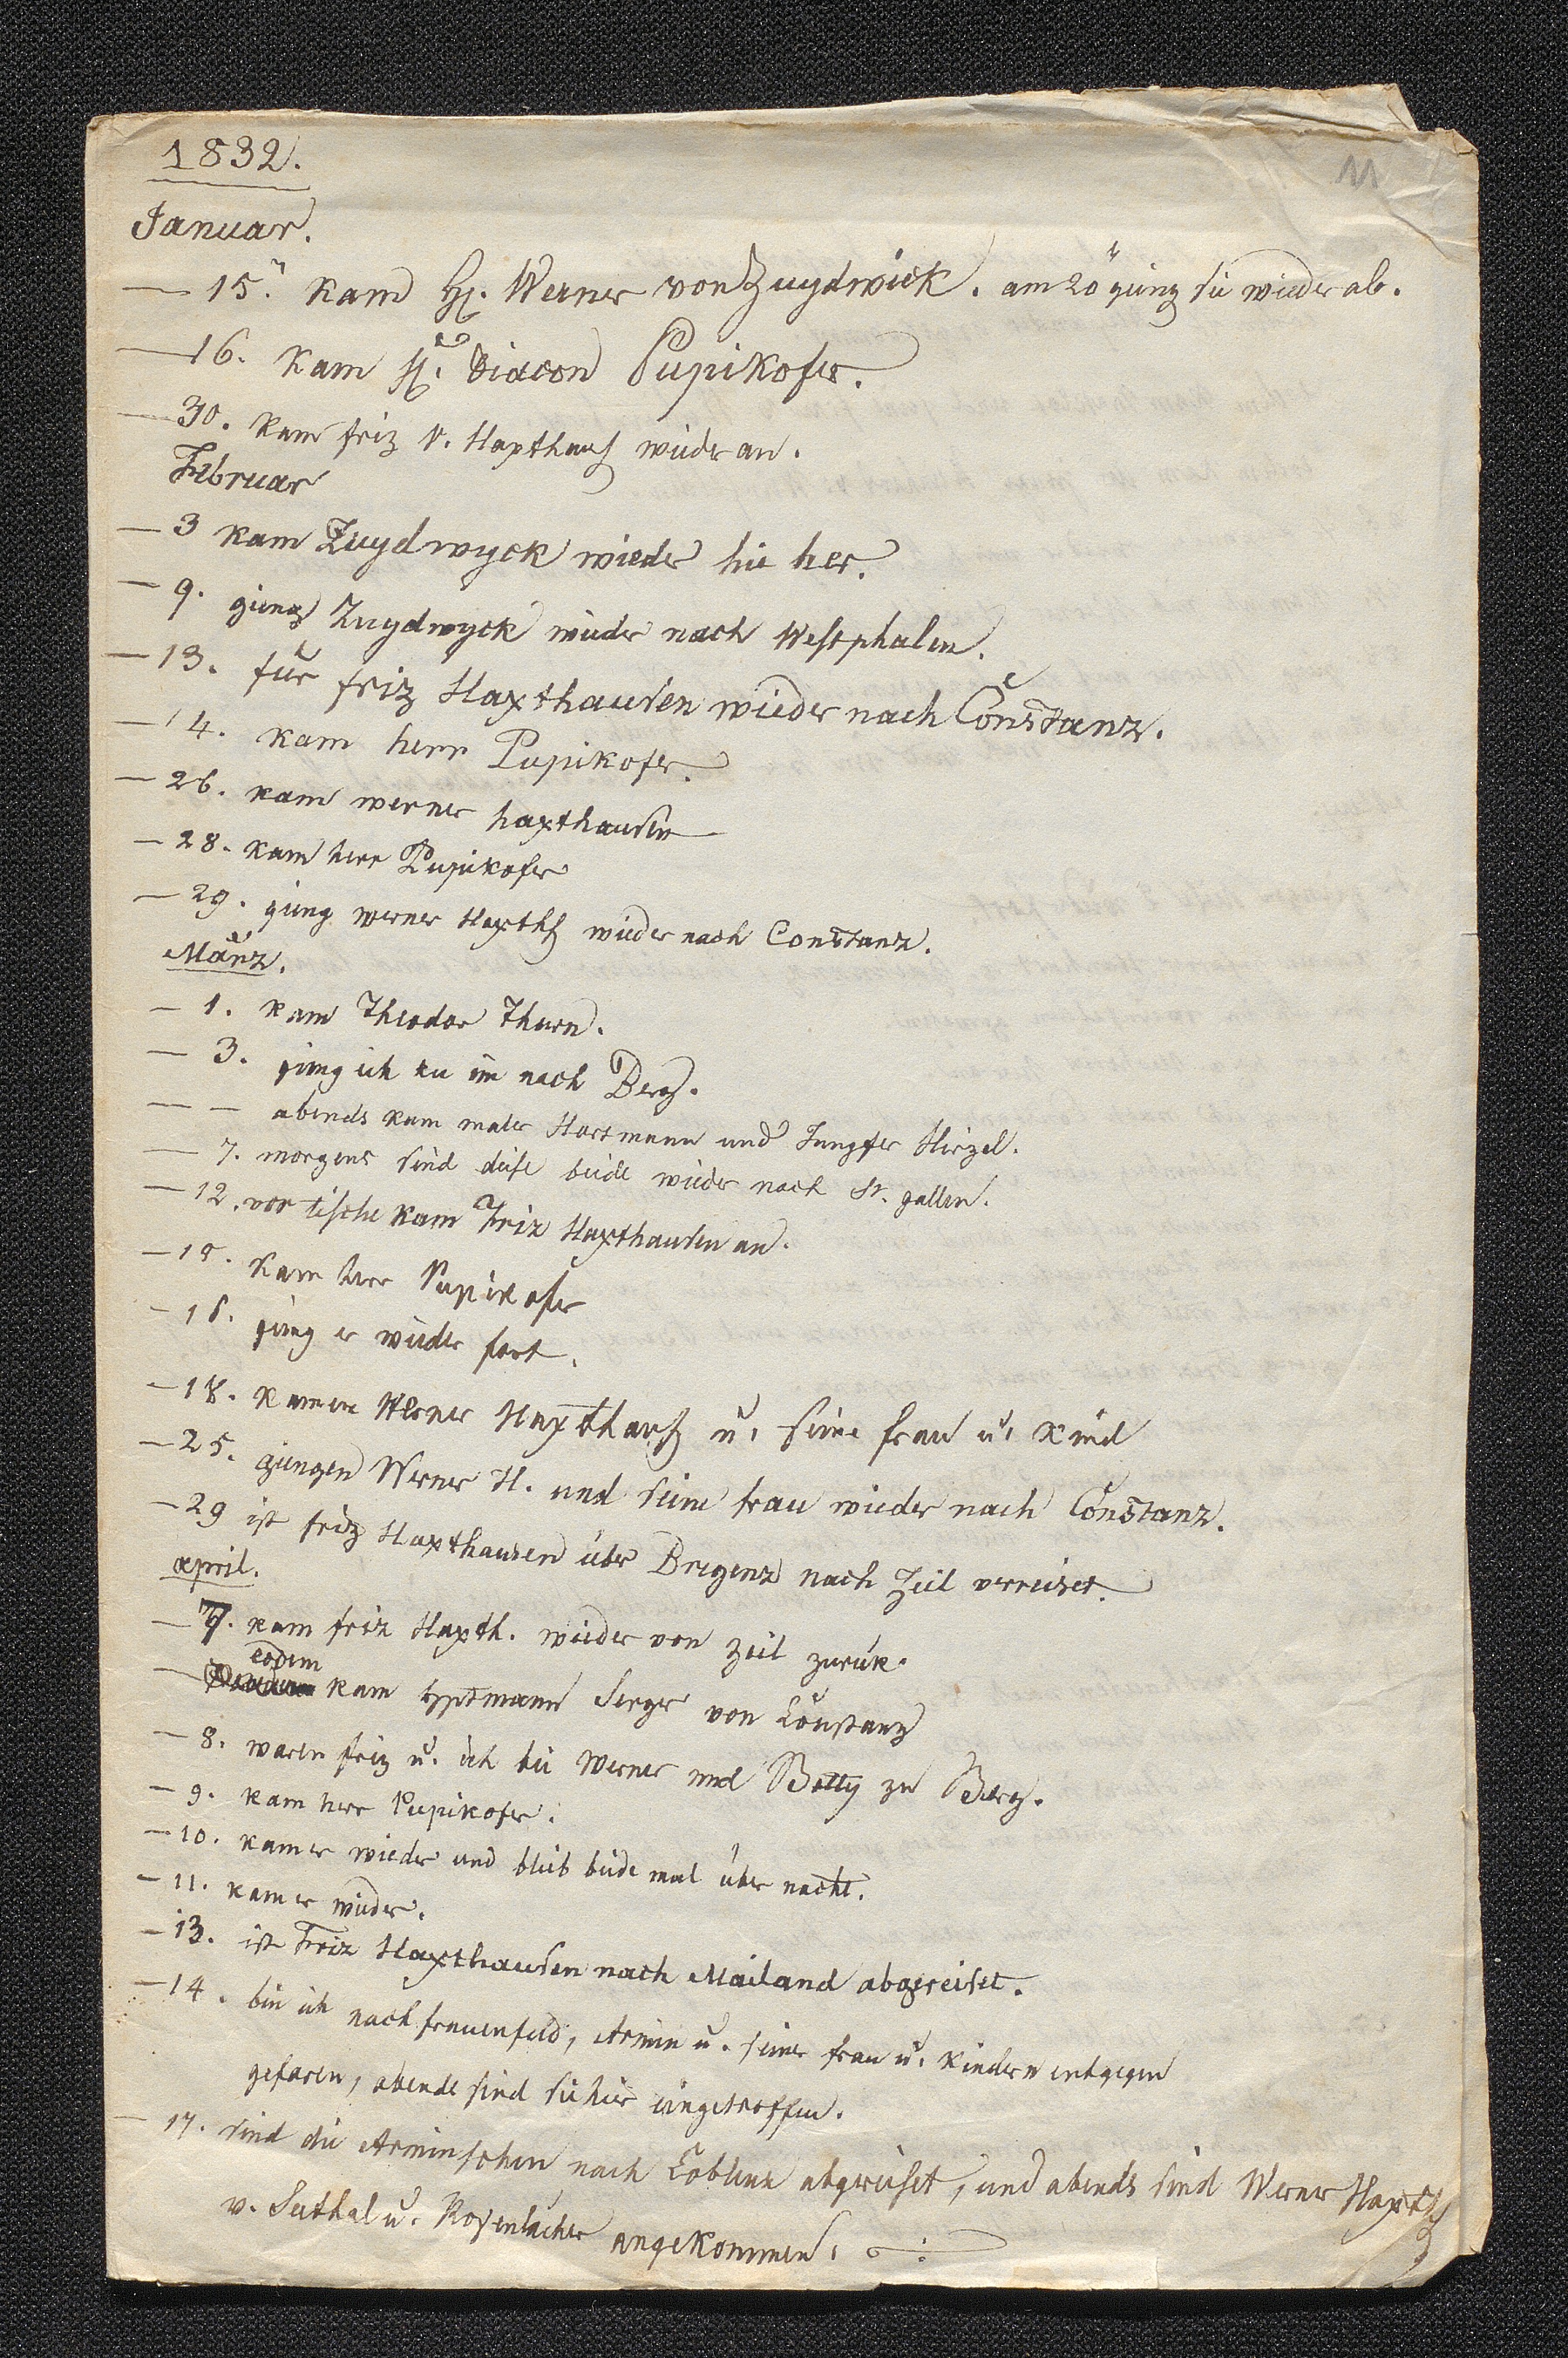 11
1832.
Januar.
— 15. kam H. Werner von Zuydwick. am 20 gieng sie wieder ab.
— 16. kam H. Diacon Pupikofer.
— 30. kam friz v. Haxthauß wieder an.
Februar
— 3 kam Zuydwyck wieder hie her.
— 9. gieng Zuydwyck wieder nach Westphalen.
— 13. fur friz Haxthausen wieder nach Constanz.
— 14. kam herr Pupikofer.
— 26. kam werner haxthausen
— 28. kam herr Pupikofer
— 29. gieng werner Haxthß wieder nach Constanz.
März.
— 1. kam Theodor Thurn.
— 3. gieng ich zu im nach Berg.
— — abends kam maler Hartmann und Jungfer Hirzel.
— 7. morgens sind diese beide wieder nach St. gallen.
— 12. vor tische kam Friz Haxthausen an.
— 15. kam herr Pupikofer
— 16. gieng er wieder fort.
— 18. kamen Werner Haxthauß u. seine frau u. kind
— 25. giengen Werner H. und seine frau wieder nach Constanz.
— 29 ist friz Haxthausen über Bregenz nach Zeil verreiset.
april.
— 7. kam friz Haxth. wieder von Zeil zurük.
— eodem kam Hptmann Seeger von Constanz
— 8. waren friz u. ich bei Werner und Betty zu Berg.
— 9. kam herr Pupikofer.
— 10. kam er wieder und blieb beide mal über nacht.
— 11. kam er wieder.
— 13. ist Friz Haxthausen nach Mailand abgereiset.
— 14. bin ich nach frauenfeld, Armin u. seiner frau u. kindern entgegen
gefaren, abends sind sie hier eingetroffen.
— 17. sind die Arminschen nach Coblenz abgereiset, und abends sind Werner Haxthß
v. Suthal u. Rosenlächer angekommen.